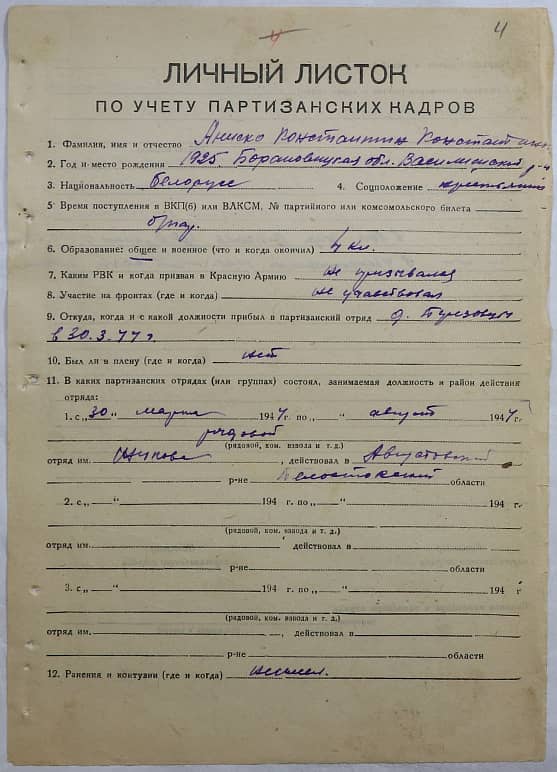 4
4
ЛИЧНЫЙ ЛИСТОК
ПО УЧЕТУ ПАРТИЗАНСКИХ КАДРОВ
1. Фамилия, имя и отчество Аниско Константин Константин.
2. Год и место рождения 1925 Барановицкая обл. Василишский р-н
3. Национальность белорусс 4. Соцположение крестьянин
5. Время поступления в ВКП(б) или ВЛКСМ, № партийного или комсомольского билета
6. Образование: общее и военное (что и когда окончил) 4 кл.
7. Каким РВК и когда призван в Красную Армию не призывался
8. Участие на фронтах (где и когда) не участвовал
9. Откуда, когда и с какой должности прибыл в партизанский отряд д.
в 30.3.44 г.
10. Был ли в плену (где и когда) нет
11. В каких партизанских отрядах (или группах) состоял, занимаемая должность и район действия
отряда:
1. с „30“ марта 1944 г. по „ “ август 1944 г.
рядовой
(рядовой, ком. взвода и т. д.)
отряд им. Жукова, действовал в Августовский
р-не Белостокский области
2. с „ “ 194 г. по „ “ 194 г.
(рядовой, ком. взвода и т. д.)
отряд им. , действовал в
р-не области
3. с „ “ 194 г. по „ “ 194 г
(рядовой, ком. взвода и т. д.)
отряд им. , действовал в
р-не области
12. Ранения и контузии (где и когда) не имел.